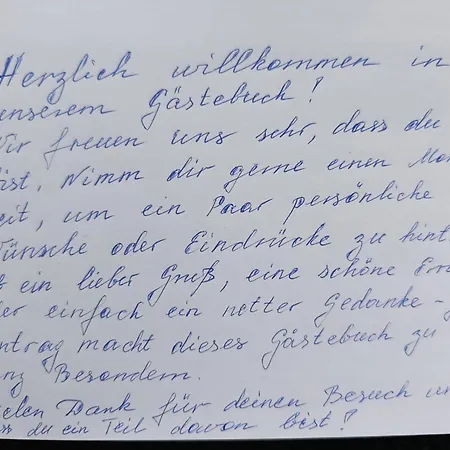 Herzlich willkommen in
unserem Gästebuch!
Wir freuen uns sehr, dass du
ist. Nimm dir gerne einen Mom
eit, um ein Paar persönliche
Wünsche oder Eindrücke zu hint
ein lieber Gruß, eine schöne Erin
er einfach ein netter Gedanke-
ntrag macht dieses Gästebuch zu
nz Besondem.
ielen Dank für deinen Besuch un
ss du ein Teil davon bist!